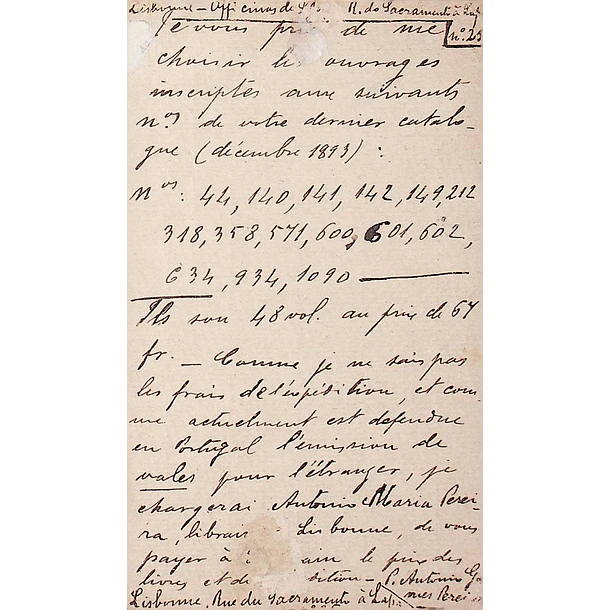 Lisbonne – Officinas de R. do Sacramento à Lapa
nº 25
Je vous de me
choisir les ouvrages
inscriptes aux suivants
nos de votre dernier catalo-
gue (décembre 1893) :
Nos : 44, 140, 141, 142, 149, 212
318, 358, 571, 600, 601, 602,
634, 934, 1090
Ils son 48 vol. au prix de 67
fr. – Comme je ne sais pas
les frais de l'éxpédition, et com-
me actuelment est defendue
en Portugal l'émission de
vales pour l'étranger, je
chargerai Antonio Maria Perei-
ra, librai Lisbonne, de vous
payer à le prix des
livres et de dition – P. Antonio Go
mes Perei
Lisbonne, Rue du Sacramento à Lapa